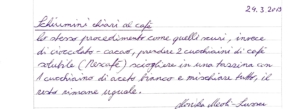 24.3.2013
Schiumini chiari al café
Lo stesso procedimento come quelli scuri, invece
di cioccolato - cacao, prendere 2 cucchiaini di café
solubile (Nescafé) sciogliere in una tazzina con
1 cucchiaino di aceto bianco e mischiare tutto, il
resto rimane uguale.